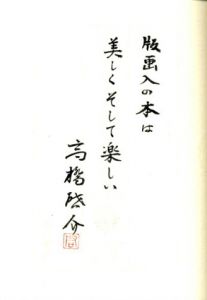 版画入の本は
美しくそして楽しい
高橋啓介